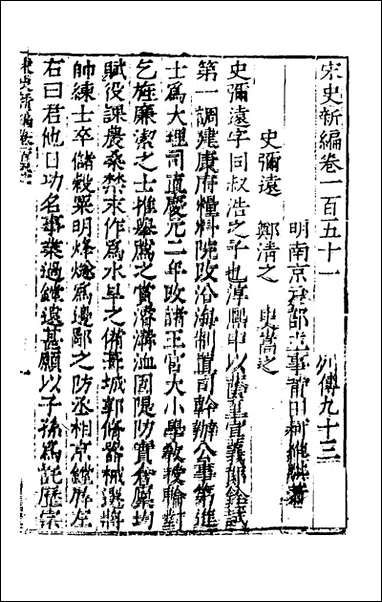 宋史新編卷一百五十一　列傳九十三
明南京戶部主事莆田柯維騏著
史彌遠　鄭清之　史嵩之
史彌遠字同叔浩之子也淳熙中以宣義郎銓試
第一調建康府糧料院改沿海制置司幹辦公事第進
士爲大理司直慶元二年改諸王官大小學教授輪對
乞旌廉潔之士推舉薦之賞濬溝洫固隄防實倉廩均
賦役課農桑禁末作爲水旱之備葺城郭修器械選將
帥練士卒儲穀粟明烽燧爲邊鄙之防丞相京鏜屏左
右曰君他日功名事業過鏜遠甚願以子孫爲託歷宗
史新編卷